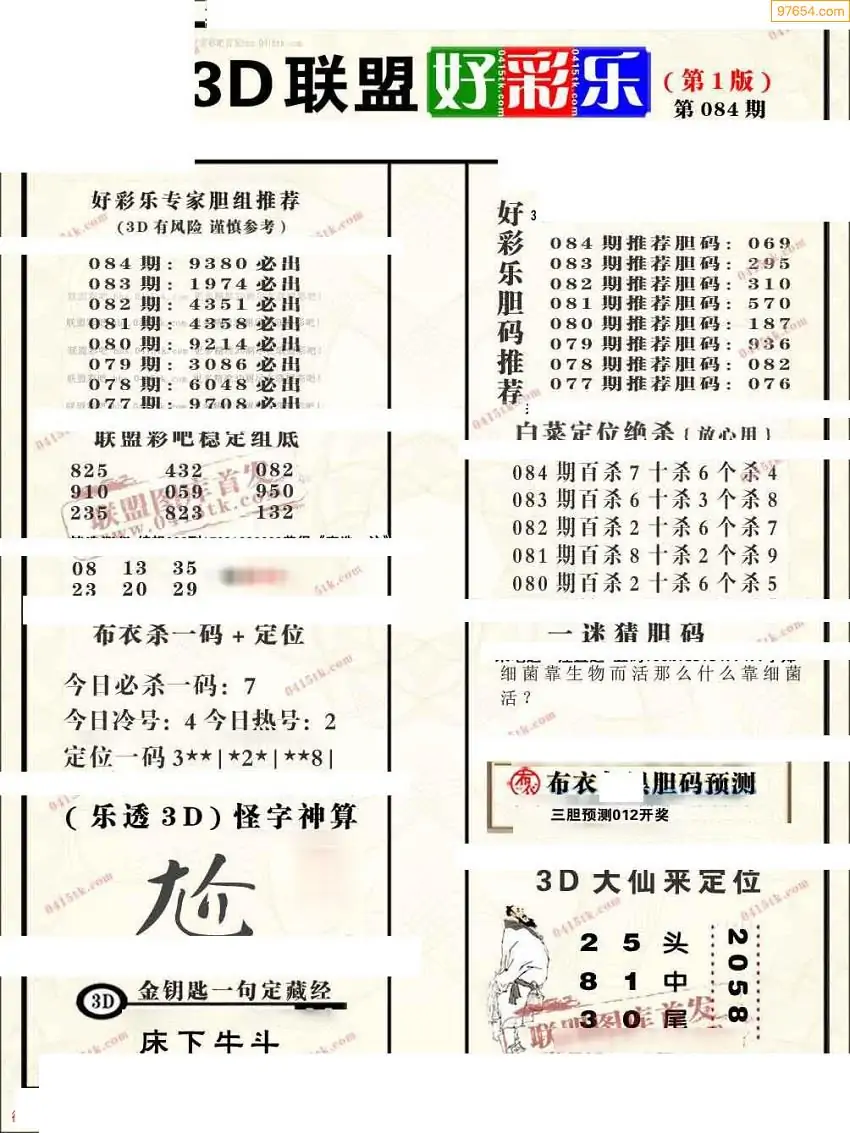 97654.com
3D联盟好彩乐
(第1版)
第084期
好彩乐专家胆组推荐
(3D有风险 谨慎参考)
084期: 9380必出
083期: 1974必出
082期: 4351必出
081期: 4358必出
080期: 9214必出
079期: 3086必出
078期: 6048必出
077期: 9708必出
联盟彩吧稳定组底
825 432 082
910 059 950
235 823 132
08 13 35
23 20 29
布衣杀一码+定位
今日必杀一码: 7
今日冷号: 4 今日热号: 2
定位一码 3**|*2*|**8|
(乐透3D)怪字神算
尬
3D 金钥匙一句定藏经
床下牛斗
好彩乐胆码推荐
3
084期推荐胆码: 069
083期推荐胆码: 295
082期推荐胆码: 310
081期推荐胆码: 570
080期推荐胆码: 187
079期推荐胆码: 936
078期推荐胆码: 082
077期推荐胆码: 076
白菜定位绝杀{放心用}
084期百杀7十杀6个杀4
083期百杀6十杀3个杀8
082期百杀2十杀6个杀7
081期百杀8十杀2个杀9
080期百杀2十杀6个杀5
一迷猜胆码
细菌靠生物而活那么什么靠细菌
活?
布衣 胆码预测
三胆预测012开奖
3D大仙来定位
2 5 头
8 1 中
3 0 尾
2058
联盟图库首发
www.0415tk.com
联盟图库首发
0415tk.com